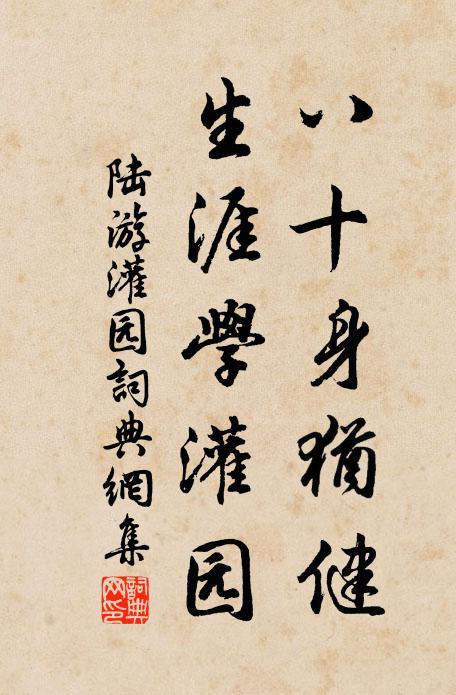 八十身猶健
生涯學灌园
陆游灌园詞典網集
詞典网印